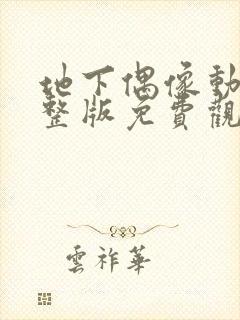 地下偶像動
整版免費觀
雲祚華